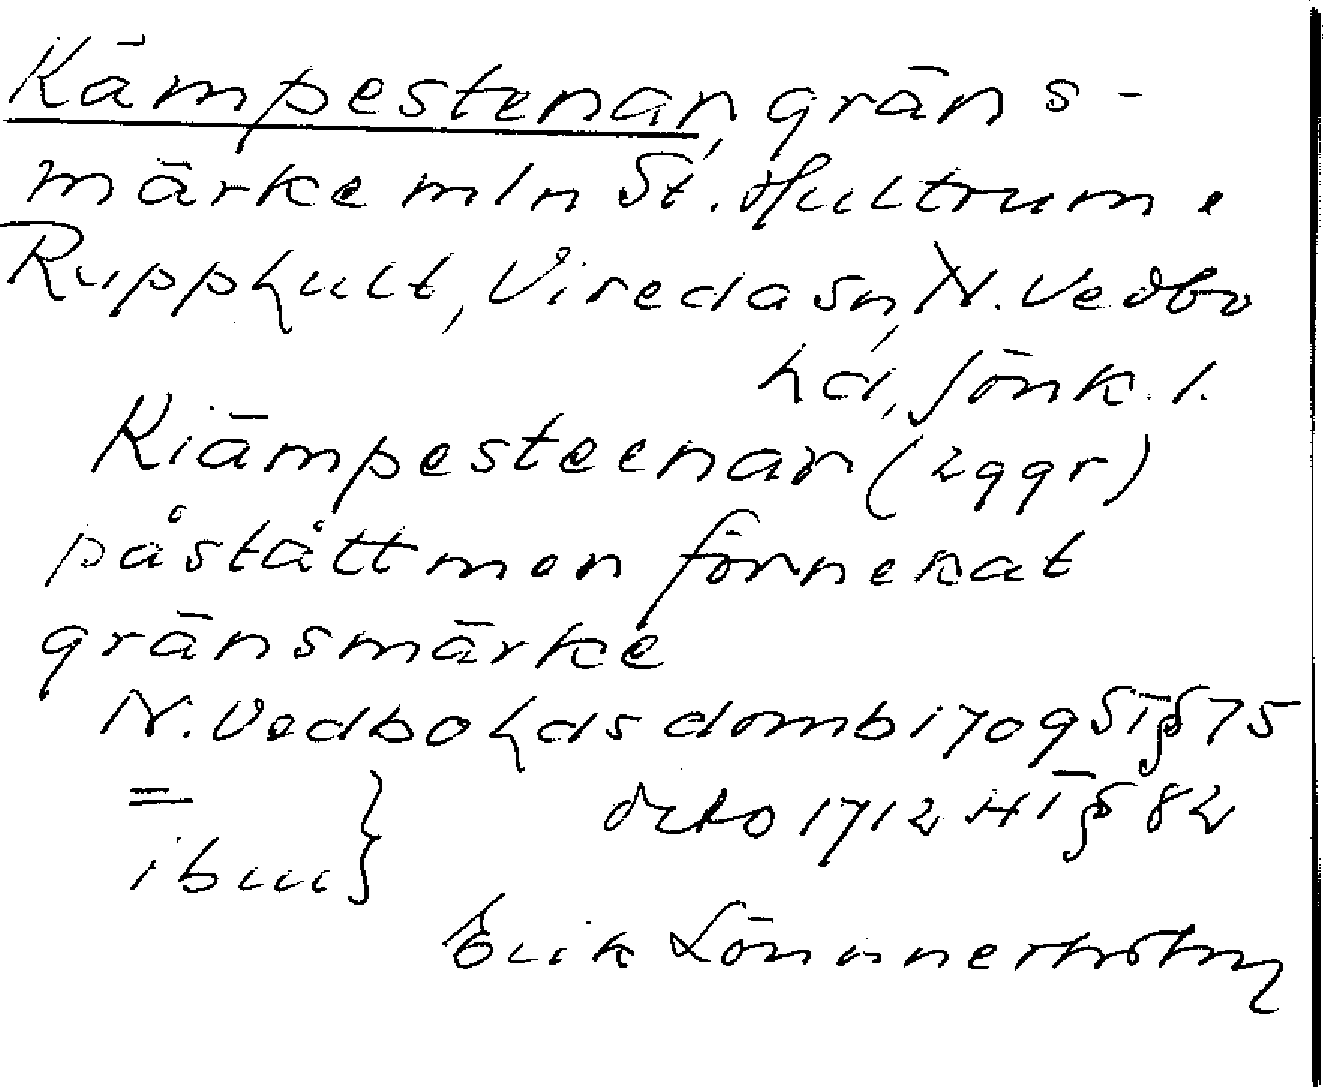 Kämpestenar, gräns-
märke mln St. Hultrum o
Rupphult, Viredasn, N. Vedbo
hd, Jönk. l.
Kiämpesteenar (2 ggr)
påstått men förnekat
gränsmärke
N. Vedbo hds domb 1709 ST § 75
= dito 1712 HT § 82
ibm }
Erik Lönnerholm